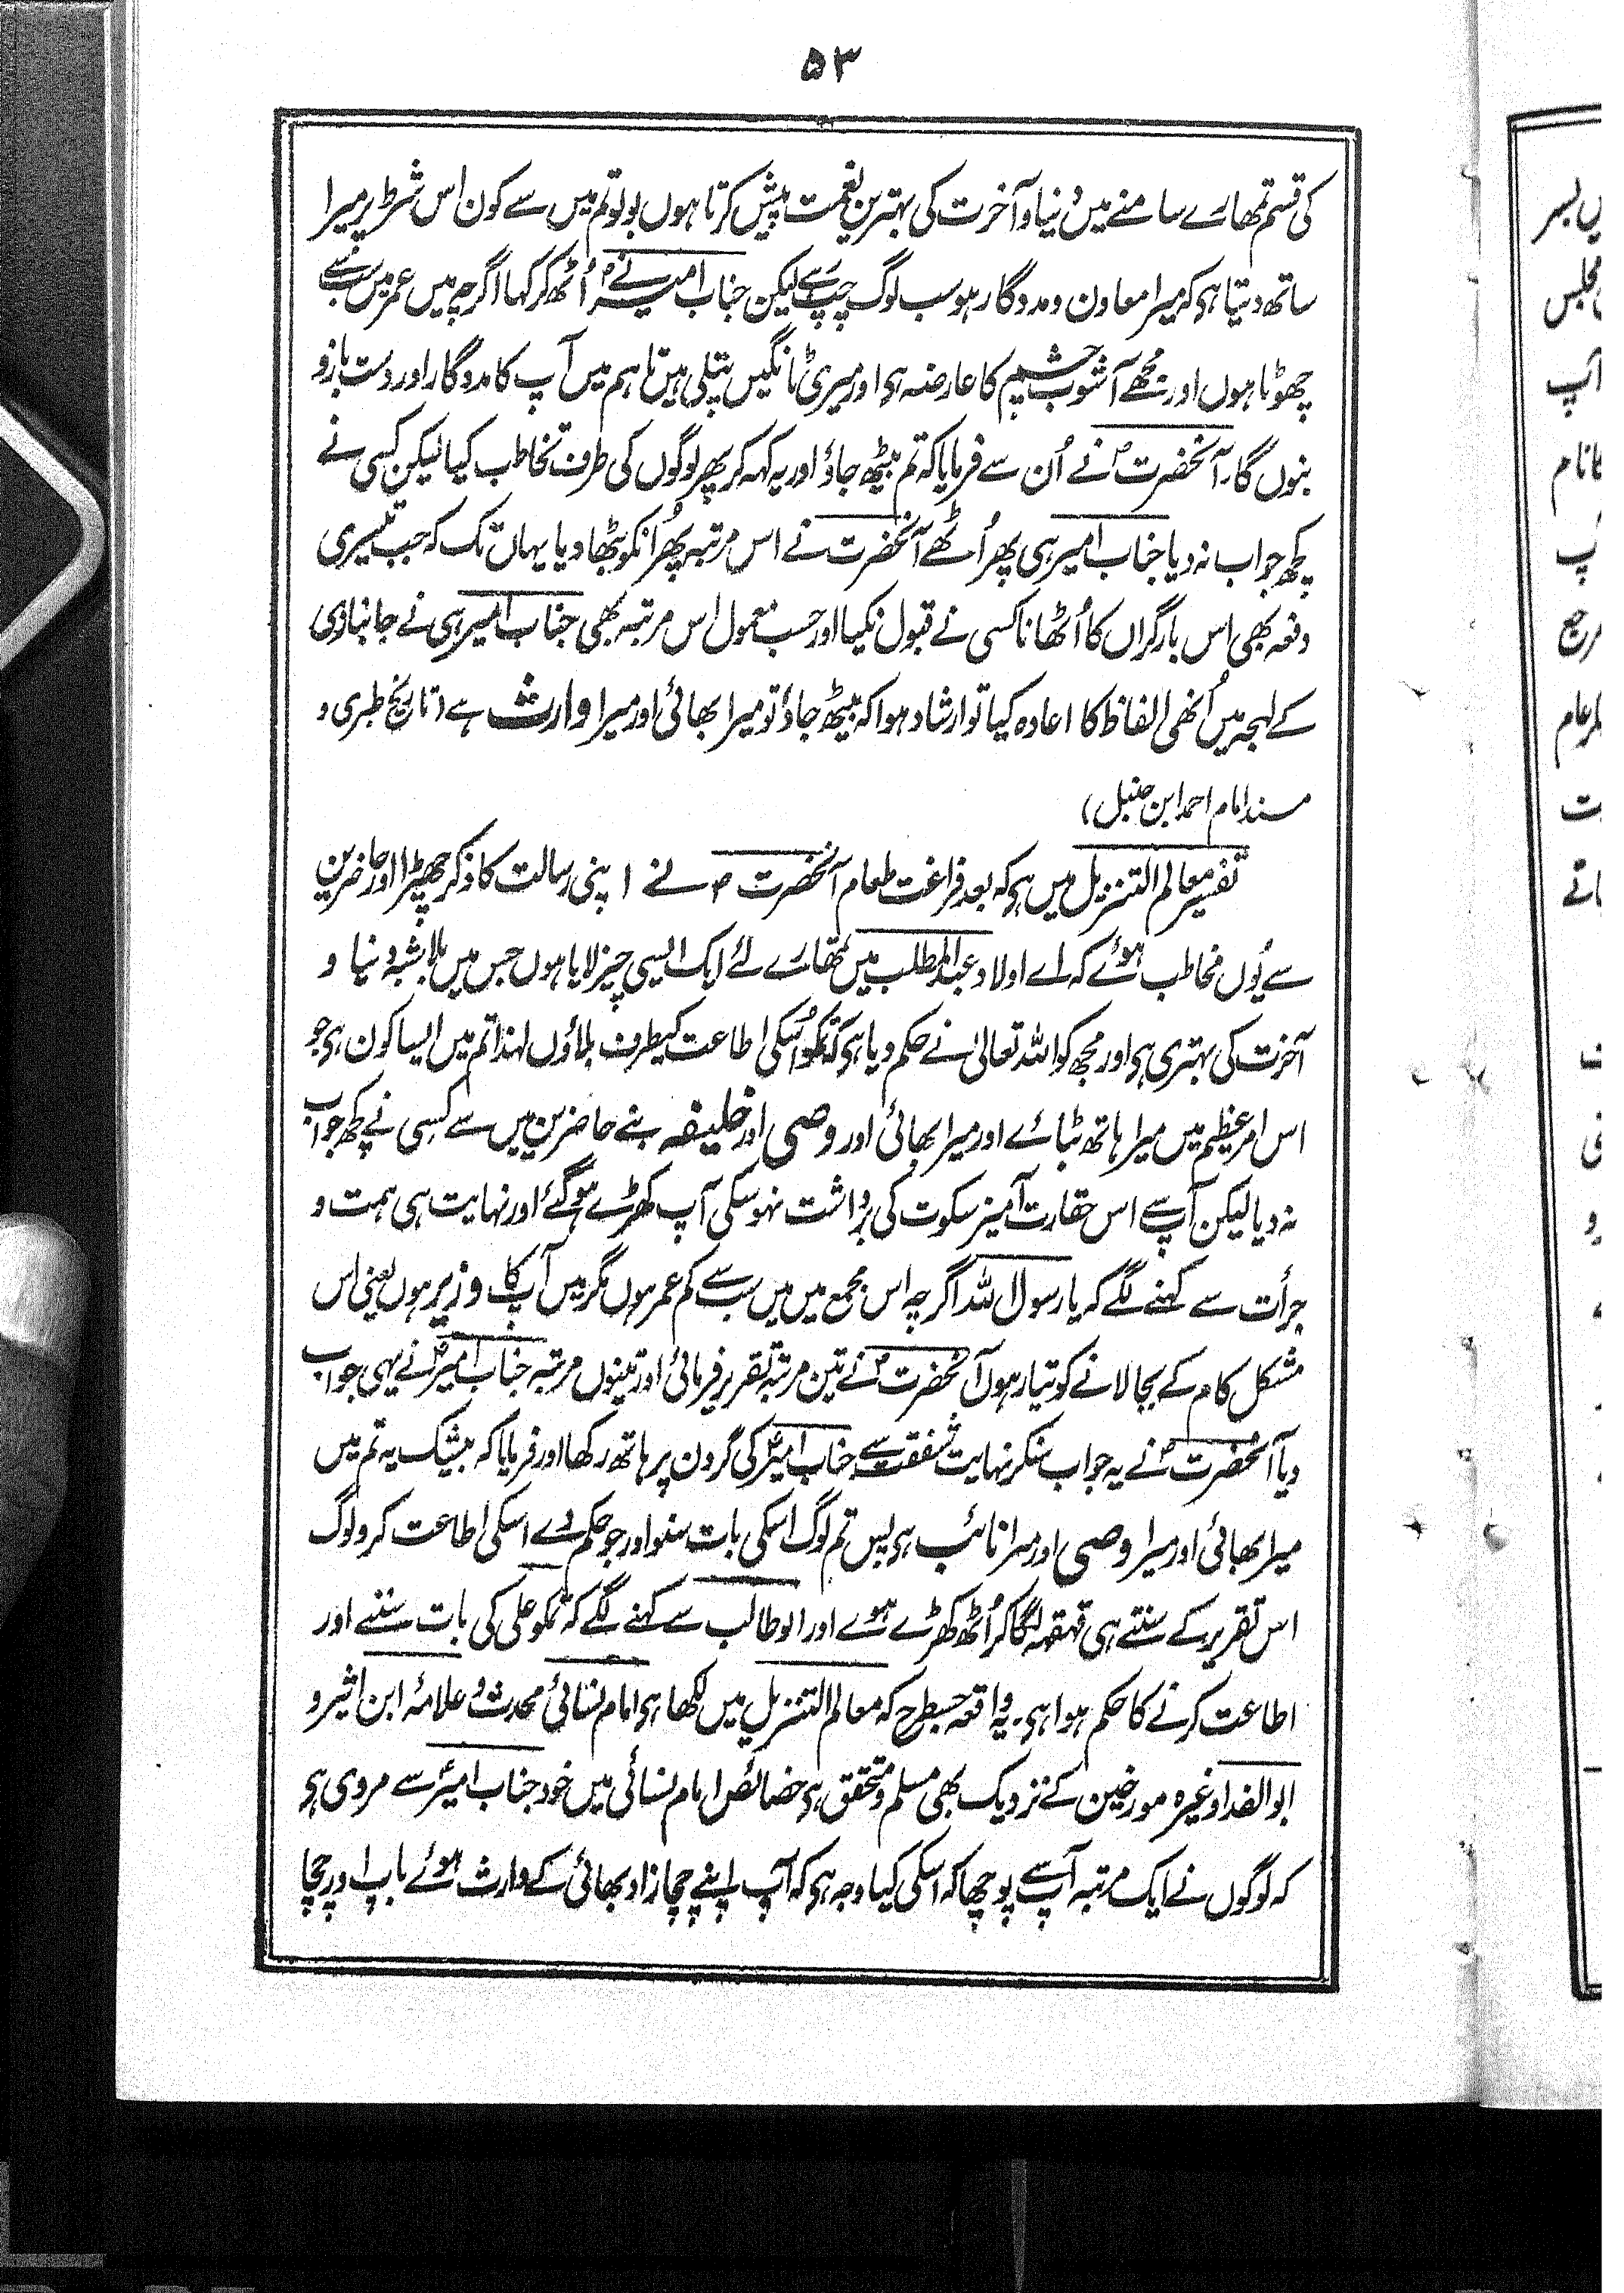 ۵۳
کی قسم تمھارے سامنے میں دُنیا و آخرت کی بہترین نعمت پیش کرتا ہوں بولو تم میں سے کون اس شرط پر میرا
ساتھ دیتا ہی کہ میرا معاون و مددگار ہو سب لوگ چپ رہے لیکن جناب امیرؑ نے اُٹھ کر کہا اگرچہ میں عمر میں سب سے
چھوٹا ہوں اور مجھے آشوب چشم کا عارضہ ہی اور میری ٹانگیں پتلی ہیں تاہم میں آپ کا مددگار اور دست بازو
بنوں گا۔ آنحضرتؐ نے اُن سے فرمایا کہ تم بیٹھ جاؤ اور یہ کہہ کر پھر لوگوں کی طرف تخاطب کیا لیکن کسی نے
کچھ جواب نہ دیا جناب امیر ہی پھر اُٹھے آنحضرت نے اس مرتبہ پھر اُنکو بٹھا دیا یہاں تک کہ جب تیسری
دفعہ بھی اس بار گراں کا اُٹھانا کسی نے قبول نکیا اور حسب معمول اس مرتبہ بھی جناب امیر ہی نے جانبازی
کے لہجہ میں اُنھی الفاظ کا اعادہ کیا تو ارشاد ہوا کہ بیٹھ جاؤ تو میرا بھائی اور میرا وارث ہے (تاریخ طبری و
مسند امام احمد ابن حنبل)
تفسیر معالم التنزیل میں ہی کہ بعد فراغت طعام آنحضرت ؐ نے اپنی رسالت کا ذکر چھیڑا اور حاضرین
سے یُوں مخاطب ہوئے کہ اے اولاد عبدالمطلب میں تمھارے لئے ایک ایسی چیز لایا ہوں جس میں بلا شبہ دنیا و
آخرت کی بہتری ہی اور مجھ کو اللہ تعالیٰ نے حکم دیا ہی کہ تمکو اُسکی اطاعت کیطرف بلاؤں لہٰذا تم میں ایسا کون ہی جو
اس امر عظیم میں میرا ہاتھ بٹائے اور میرا بھائی اور وصی اور خلیفہ بنے حاضرین میں سے کسی نے کچھ جواب
نہ دیا لیکن آپ سے اس حقارت آمیز سکوت کی برداشت نہوسکی آپ کھڑے ہوگئے اور نہایت ہی ہمت و
جرأت سے کہنے لگے کہ یا رسول اللہ اگرچہ اس مجمع میں میں سب سے کم عمر ہوں مگر میں آپ کا وزیر ہوں یعنی اس
مشکل کام کے بجا لانے کو تیار ہوں آنحضرتؐ نے تین مرتبہ تقریر فرمائی اور تینوں مرتبہ جناب امیرؑ نے یہی جواب
دیا آنحضرتؐ نے یہ جواب سنکر نہایت شفقت سے جناب امیرؑ کی گردن پر ہاتھ رکھا اور فرمایا کہ بیشک یہ تم میں
میرا بھائی اور میرا وصی اور میرا نائب ہی پس تم لوگ اسکی بات سنو اور جو حکم دے اسکی اطاعت کرو لوگ
اس تقریر کے سنتے ہی قہقہہ لگا کر اُٹھ کھڑے ہوے اور ابوطالب سے کہنے لگے کہ تمکو علی کی بات سننے اور
اطاعت کرنے کا حکم ہوا ہی۔ یہ واقعہ جسطرح کہ معالم التنزیل میں لکھا ہی امام نسائی محدث و علامۂ ابن اثیر و
ابوالفدا وغیرہ مورخین کے نزدیک بھی مسلم و متحقق ہی خصائص امام نسائی میں خود جناب امیرؑ سے مروی ہی
کہ لوگوں نے ایک مرتبہ آپ سے پوچھا کہ اسکی کیا وجہ ہی کہ آپ اپنے چچازاد بھائی کے وارث ہوئے باپ اور چچا